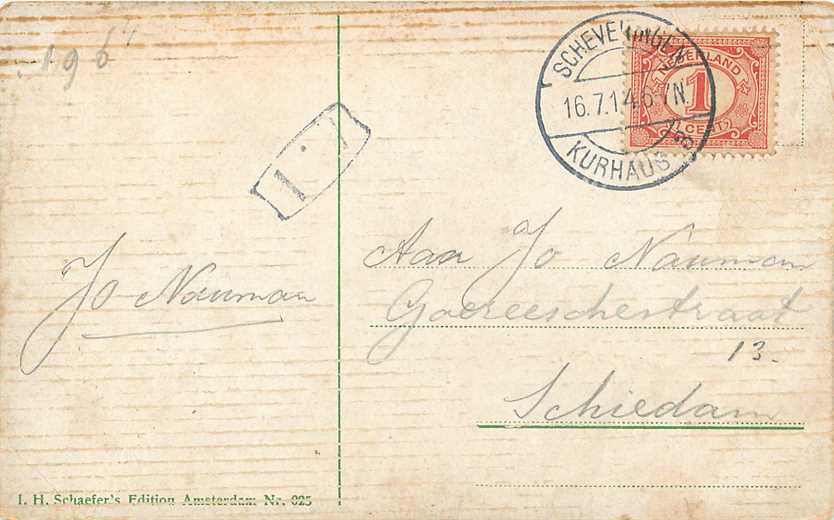 196
SCHEVENINGEN
16.7.14.6-7N.
KURHAUS
NEDERLAND
1
CENT
Aan Jo Nauman
Goereeschestraat
13.
Schiedam
Jo Nauman
I. H. Schaefer's Edition Amsterdam Nr. 025